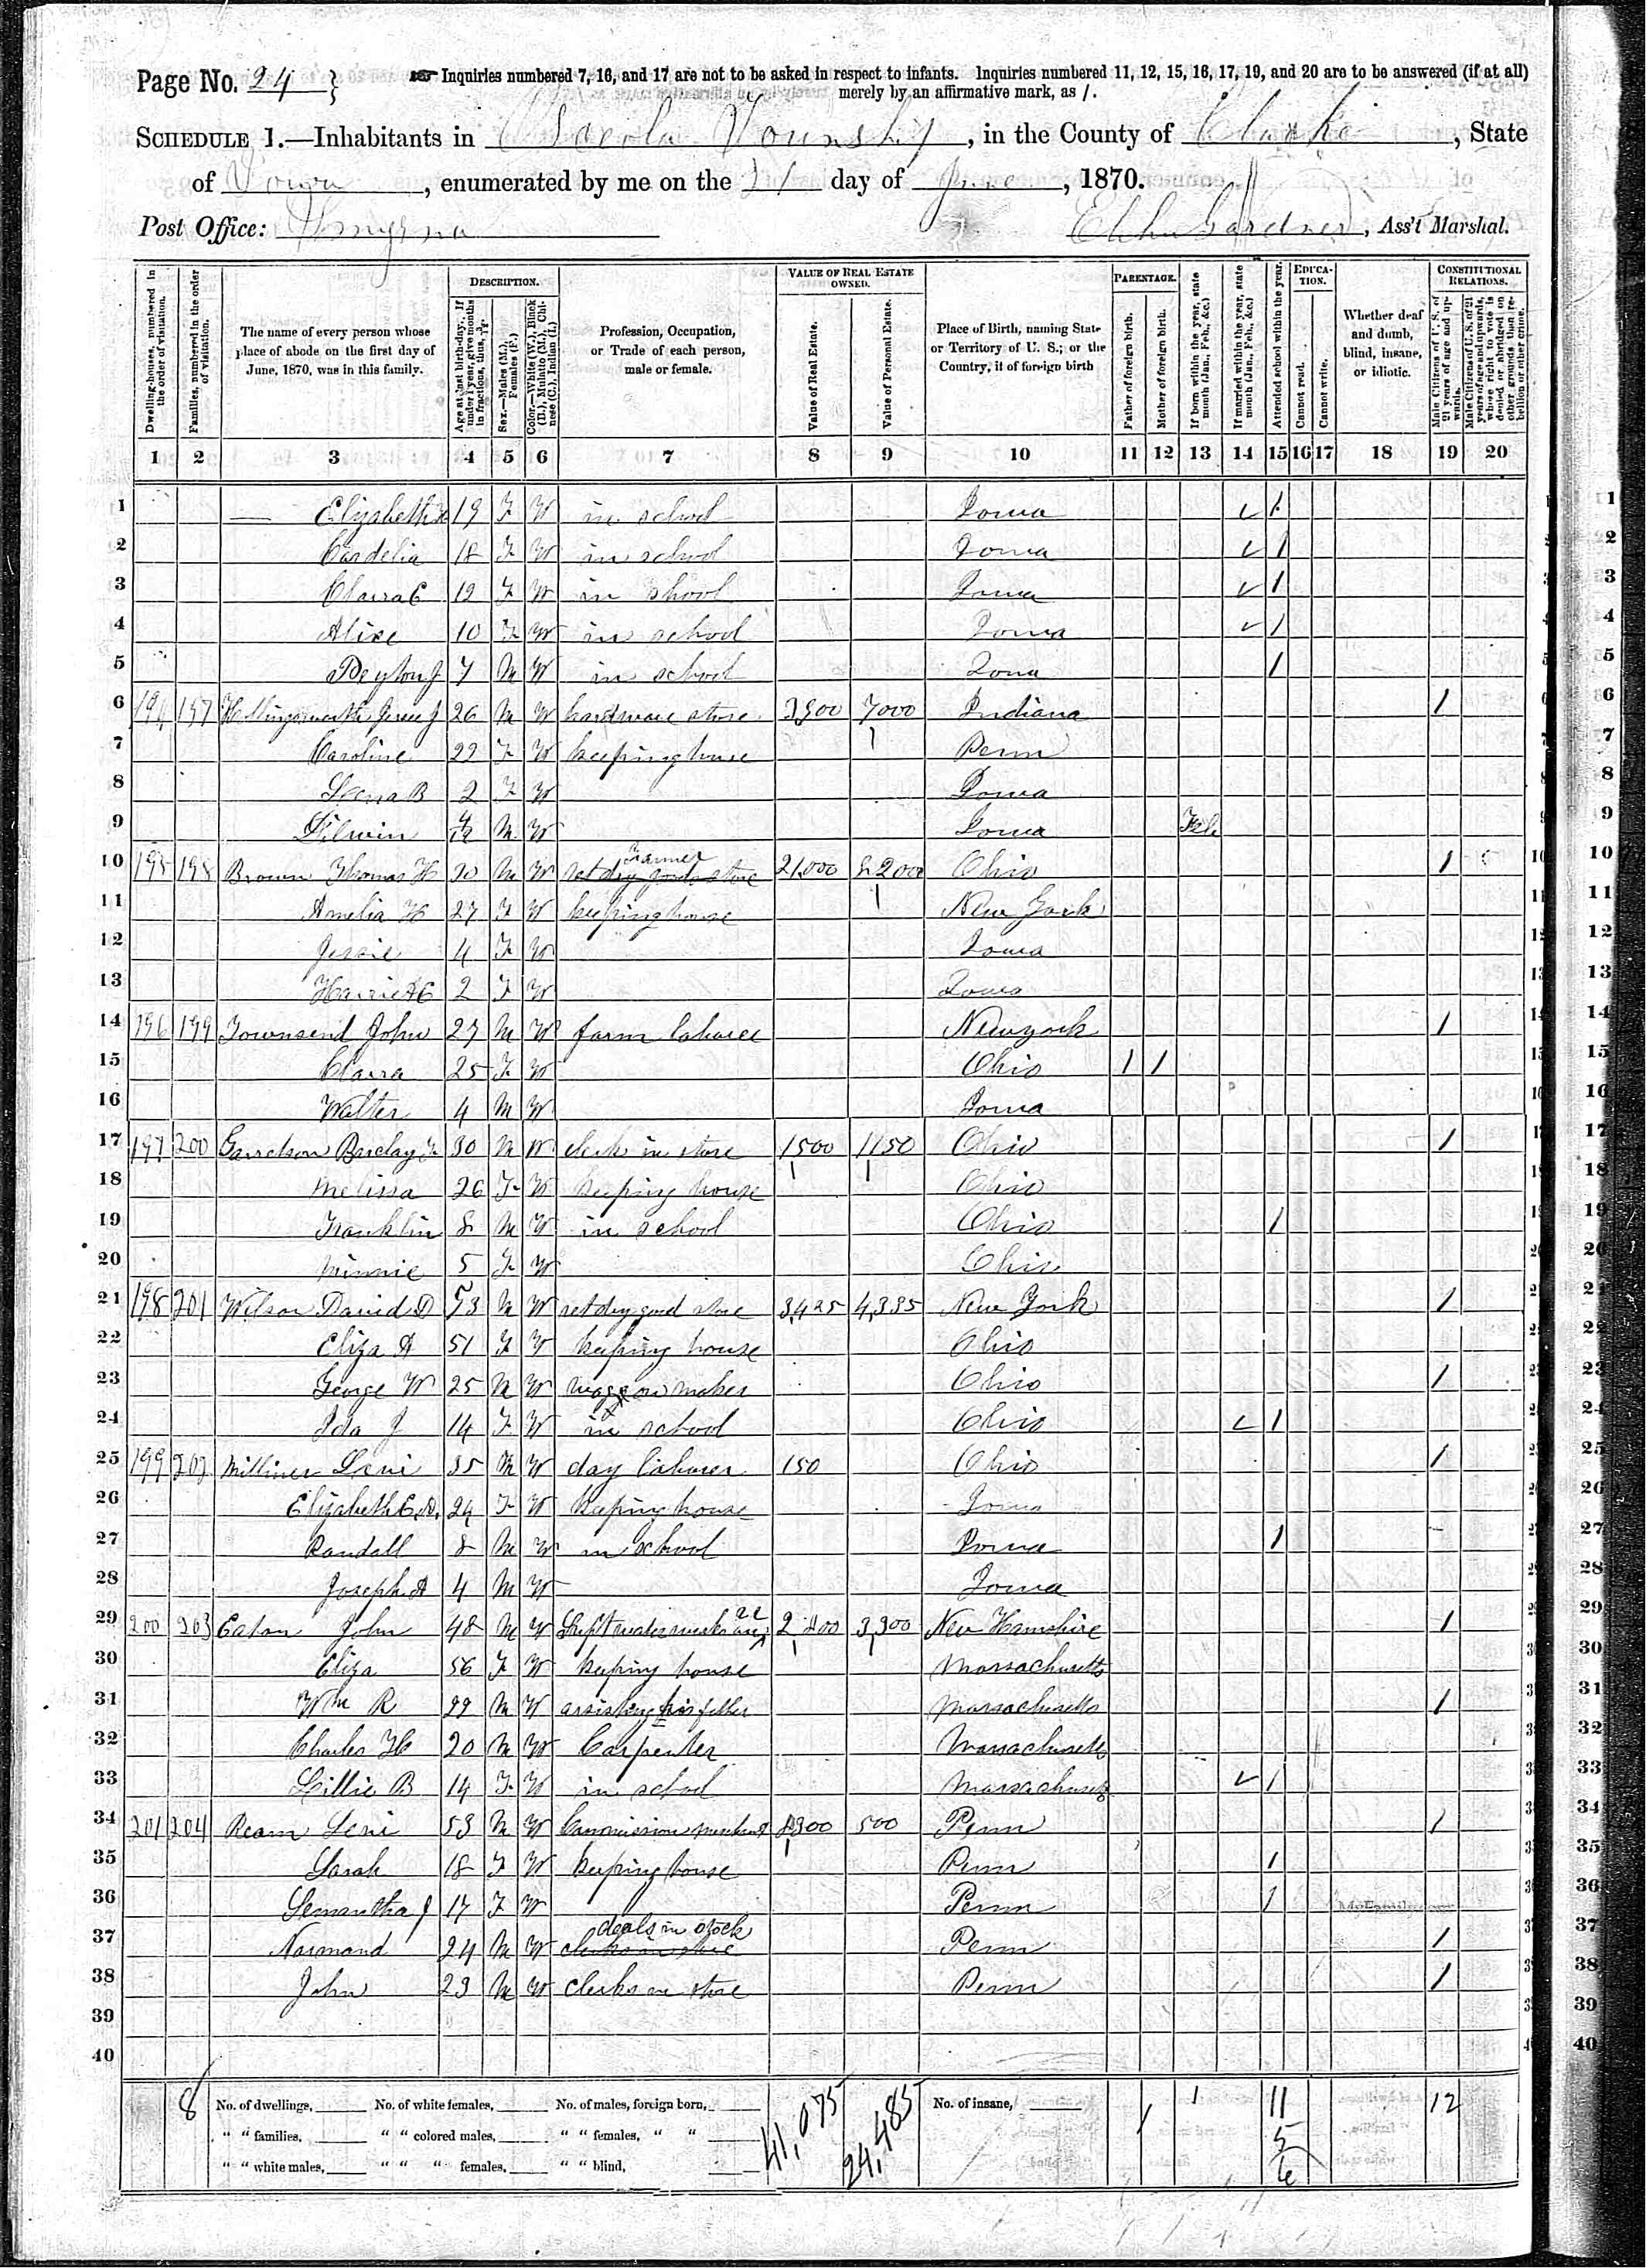 Page No. 24 } Inquiries numbered 7, 16, and 17 are not to be asked in respect to infants. Inquiries numbered 11, 12, 15, 16, 17, 19, and 20 are to be answered (if at all)
merely by an affirmative mark, as /.
SCHEDULE 1.—Inhabitants in Osceola Township, in the County of Clarke, State
of Iowa, enumerated by me on the 21 day of June, 1870.
Post Office: Smyrna Elihu Gardner, Ass't Marshal.
Dwelling-houses, numbered in the order of visitation.
Families, numbered in the order of visitation.
The name of every person whose place of abode on the first day of June, 1870, was in this family.
DESCRIPTION.
Age at last birth-day. If under 1 year, give months in fractions, thus, 3/12.
Sex.—Males (M.), Females (F.)
Color.—White (W.), Black (B.), Mulatto (M.), Chinese (C.), Indian (I.)
Profession, Occupation, or Trade of each person, male or female.
VALUE OF REAL ESTATE OWNED.
Value of Real Estate.
Value of Personal Estate.
Place of Birth, naming State or Territory of U. S.; or the Country, if of foreign birth
PARENTAGE.
Father of foreign birth.
Mother of foreign birth.
If born within the year, state month (Jan., Feb., &c.)
If married within the year, state month (Jan., Feb., &c.)
Attended school within the year.
EDUCATION.
Cannot read.
Cannot write.
Whether deaf and dumb, blind, insane, or idiotic.
CONSTITUTIONAL RELATIONS.
Male Citizens of U. S. of 21 years of age and upwards.
Male Citizens of U. S. of 21 years of age and upwards, whose right to vote is denied or abridged on other grounds than rebellion or other crime.
1 2 3 4 5 6 7 8 9 10 11 12 13 14 15 16 17 18 19 20
1 — Elizabeth 19 F W in school Iowa ✓ / 1
2 Cordelia 18 F W in school Iowa ✓ / 2
3 Clarra E 12 F W in school Iowa ✓ / 3
4 Alice 10 F W in school Iowa ✓ / 4
5 Peyton J 7 M W in school Iowa / 5
6 194 197 Hollingsworth J 26 M W hardware store 3,900 7000 Indiana / 6
7 Caroline 22 F W keeping house Penn 7
8 B 2 F W Iowa 8
9 4/12 M W Iowa Feb 9
10 195 198 Brown Thomas H 30 M W ret dry goods store Farmer 21,000 2000 Ohio / 10
11 Amelia H 27 F W keeping house New York 11
12 Jessie 4 F W Iowa 12
13 Harriet E 2 F W Iowa 13
14 196 199 Townsend John 27 M W farm laborer New york / 14
15 Clarra 25 F W Ohio / / 15
16 Walter 4 M W Iowa 16
17 197 200 Garretson Barclay F 30 M W clerk in store 1500 1150 Ohio / 17
18 Melissa 26 F W keeping house Ohio 18
19 Franklin 8 M W in school Ohio / 19
20 Minnie 5 F W Ohio 20
21 198 201 Wilson David D 53 M W ret dry good store 3,425 4,335 New York / 21
22 Eliza A 51 F W keeping house Ohio 22
23 George W 25 M W waggon maker Ohio / 23
24 Ida J 14 F W in school Ohio ✓ / 24
25 199 202 Milliner Levi 35 M W day laborer 150 Ohio / 25
26 Elizabeth 24 F W keeping house Iowa 26
27 Randall 8 M W in school Iowa / 27
28 Joseph A 4 M W Iowa 28
29 200 203 Eaton John 48 M W 2,800 3,300 New Hamshire / 29
30 Eliza 56 F W keeping house Massachusetts 30
31 Wm R 22 M W assisting his father Massachusetts / 31
32 Charles H 20 M W Carpenter Massachusetts 32
33 Lillie B 14 F W in school Massachusetts ✓ / 33
34 201 204 Ream Levi 53 M W Commission merchant 8300 500 Penn / 34
35 Sarah 18 F W keeping house Penn / 35
36 Semantha J 17 F W Penn / 36
37 Normand 24 M W clerks in store deals in stock Penn / 37
38 John 23 M W clerks in store Penn / 38
39 39
40 40
8 No. of dwellings, No. of white females, No. of males, foreign born, 41,075 24,485 No. of insane, 1 1 11 12
" " families, " " colored males, " " females, " " 5
" " white males, " " " females, " " blind, 6